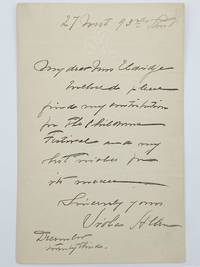 27 West 93rd Street
My dear Mrs Eldridge
Enclosed please
find my contribution
for the Philomena
Festival and my
best wishes for
its success
Sincerely yours
Viola Allen
December
twenty third.